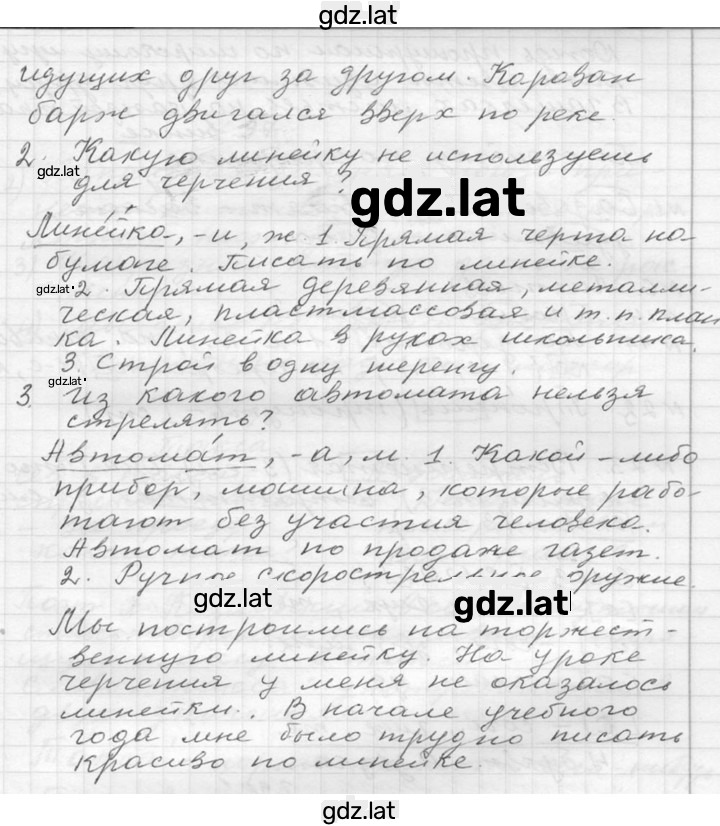 gdz.lat
идущих друг за другом. Караван
барж двигался вверх по реке.
2. Какую линейку не используешь
gdz.lat
для черчения?
gdz.lat
Лине́йка, -и, ж. 1 Прямая черта на
бумаге. Писать по линейке.
gdz.lat
2. Прямая деревянная, металли-
ческая, пластмассовая и т. п. план
ка. Линейка в руках школьника.
3. Строй в одну шеренгу.
gdz.lat
3. Из какого автомата нельзя
стрелять?
Автома́т, -а, м. 1. Какой-либо
прибор, машина, которые рабо-
тают без участия человека.
Автомат по продаже газет.
2. Ручное скорострельное оружие.
gdz.lat
gdz.lat
Мы построились на торжест-
венную линейку. На уроке
черчения у меня не оказалось
линейки. В начале учебного
года мне было трудно писать
красиво по линейке.
gdz.lat